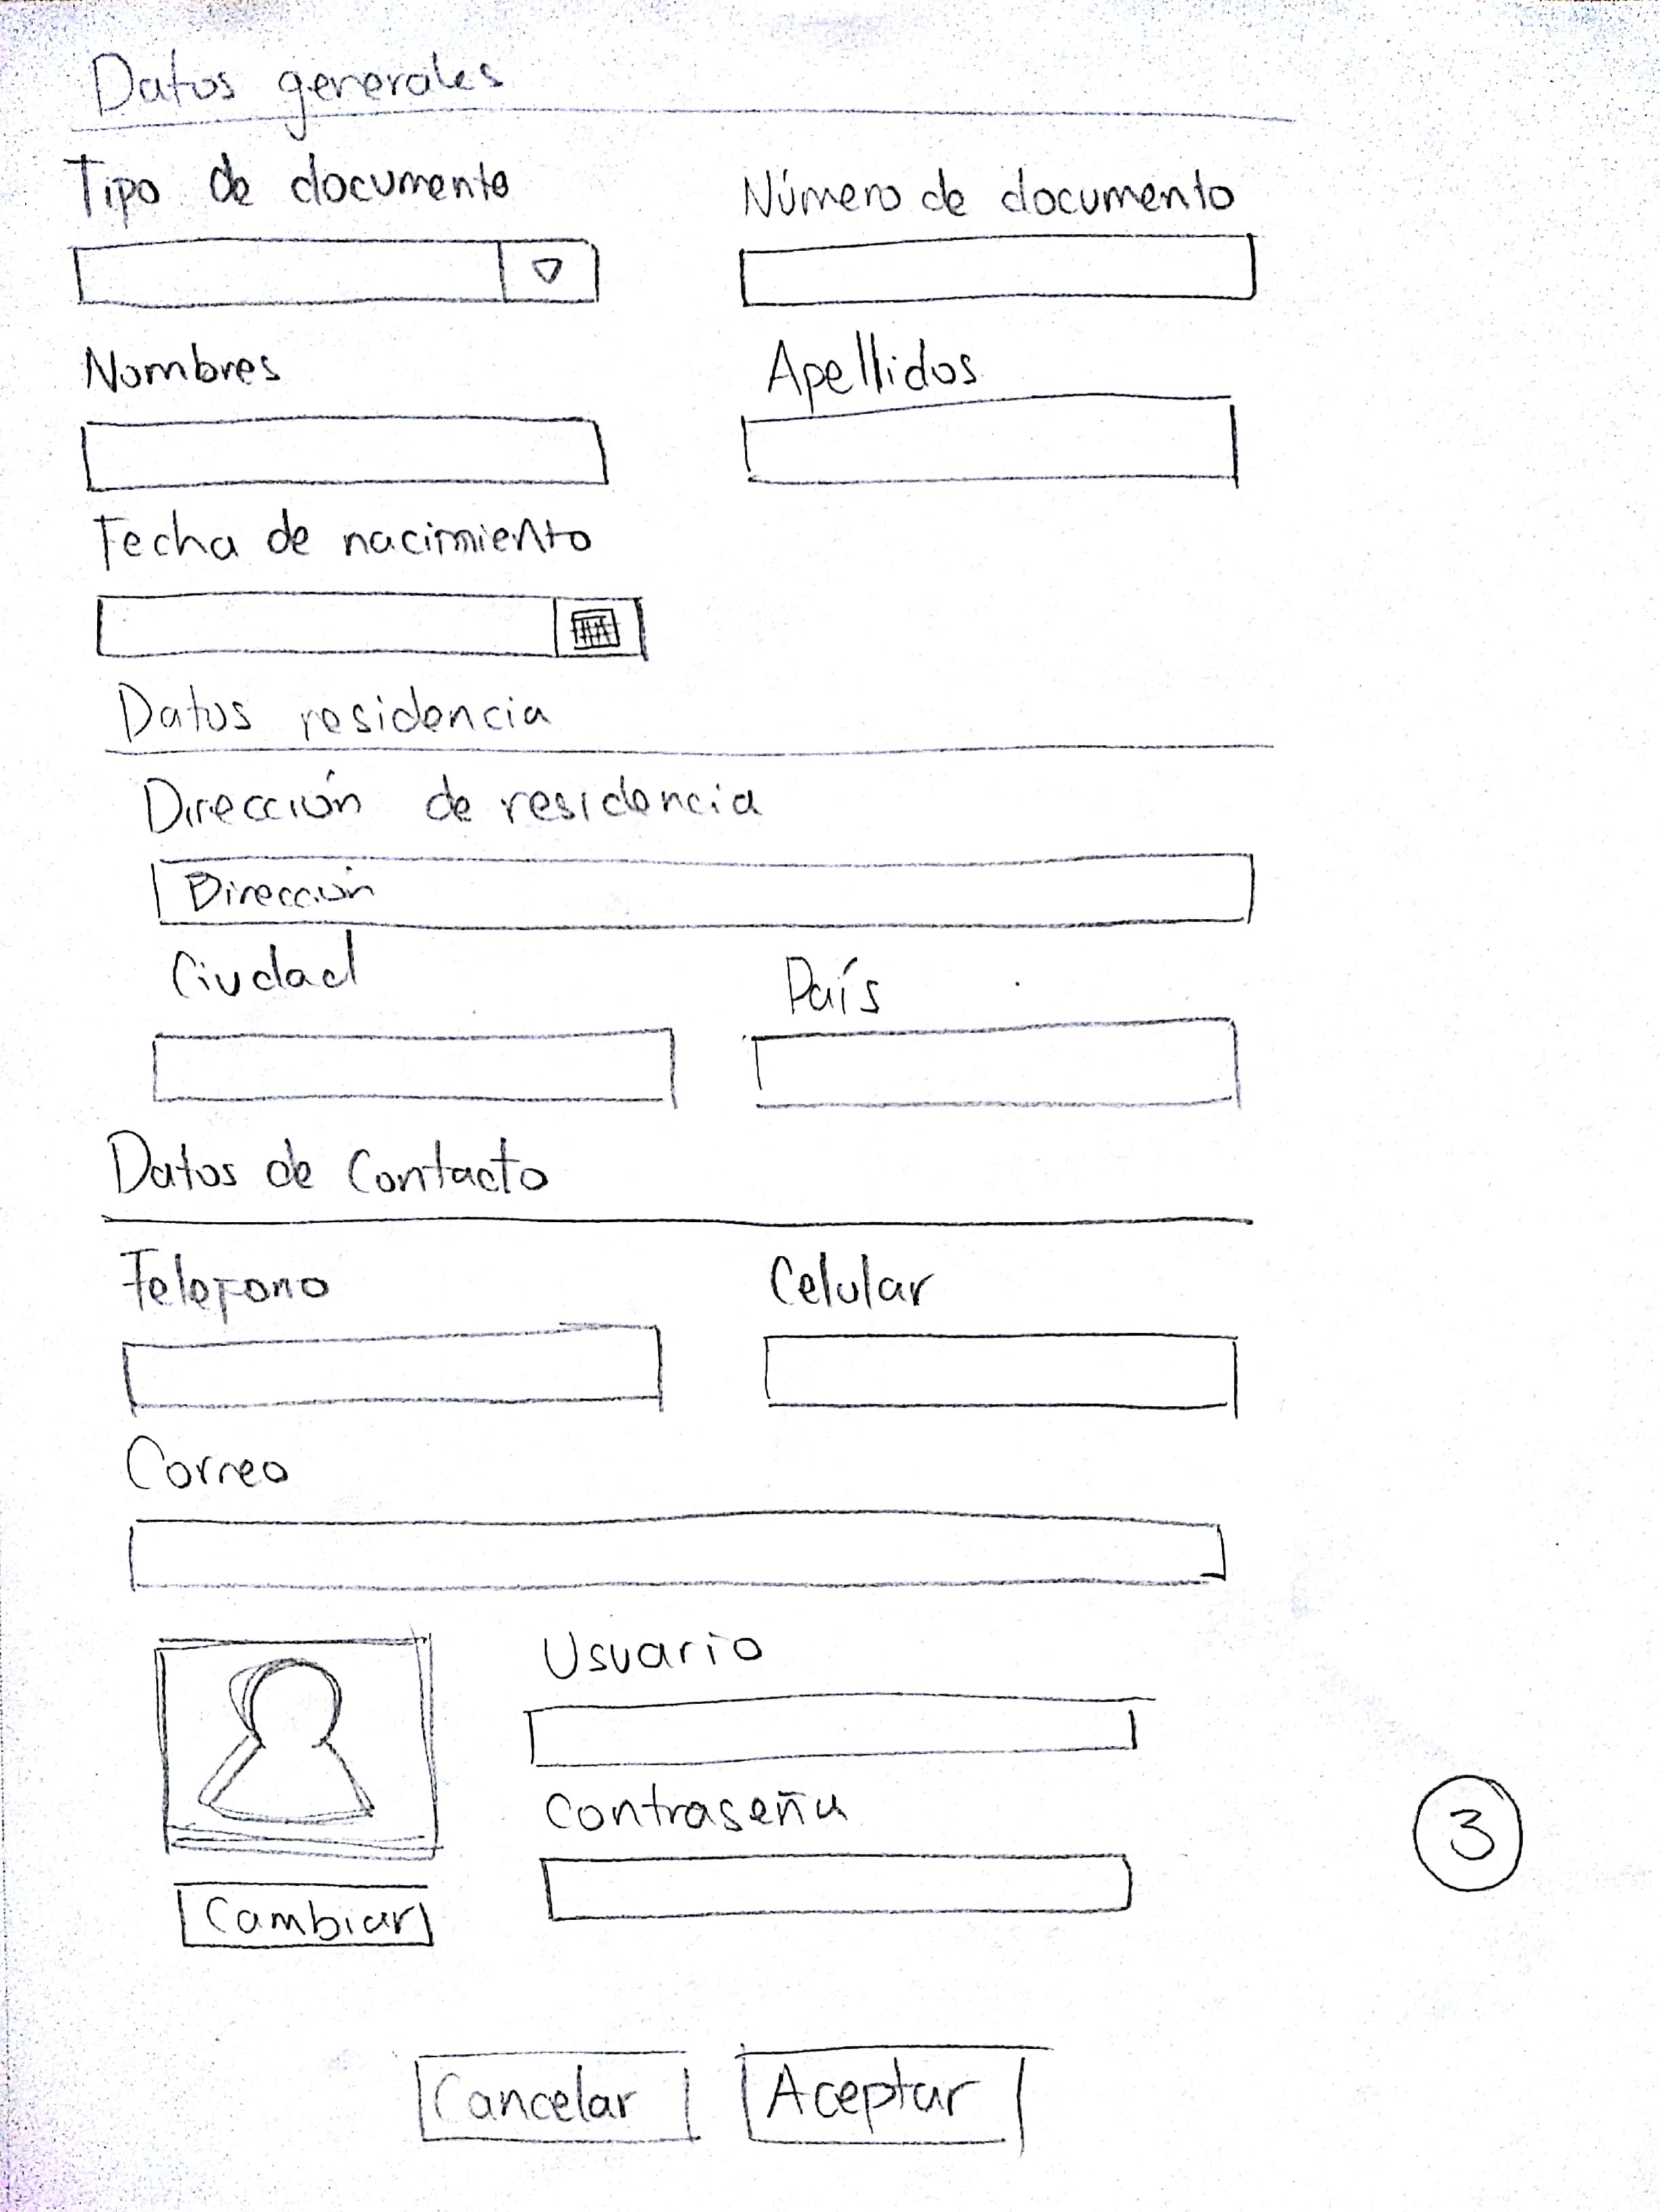 Datos generales
Tipo de documento
Número de documento
Nombres
Apellidos
Fecha de nacimiento
Datos residencia
Dirección de residencia
Dirección
Ciudad
País
Datos de Contacto
Telefono
Celular
Correo
Usuario
Contraseña
3
Cambiar
Cancelar
Aceptar